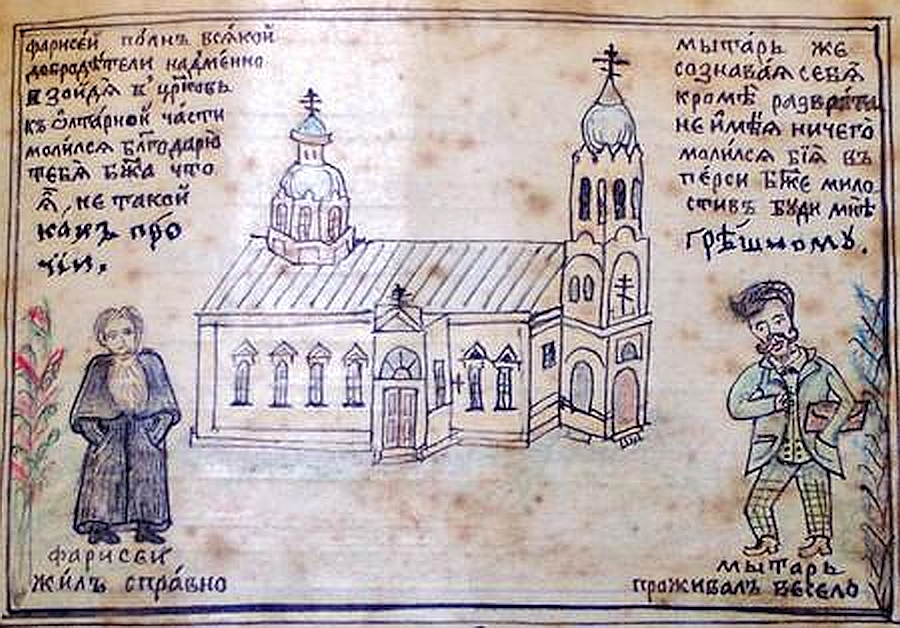 фарисе́й по́лнъ вся́кой
добродѣ́тели надме́нно
взойдя́ в' цр҃ковь
къ ѻлта́рной ча́сти
моли́лся бл҃года́рю
тебя̀ бж҃а что
ѧ҆̀, не тако́й
какъ про
чіи.
мыта́рь же
сознава́я себя̀
кромѣ̀ развра́та
не имѣ́я ничего̀
моли́лся бія̀ въ
пе́рси бж҃е мило
стивъ бу́ди мнѣ̀
грѣ́шному.
фарисей
жи́лъ спра́вно
мытарь
проживалъ весело